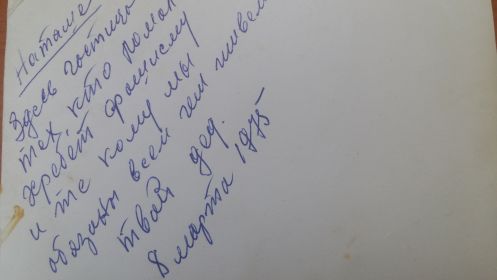 Наташе
Здесь частицы
тех, кто ломал
хребет фашизму
и те кому мы
обязаны всем чем живем
твой дед.
8 марта 1975